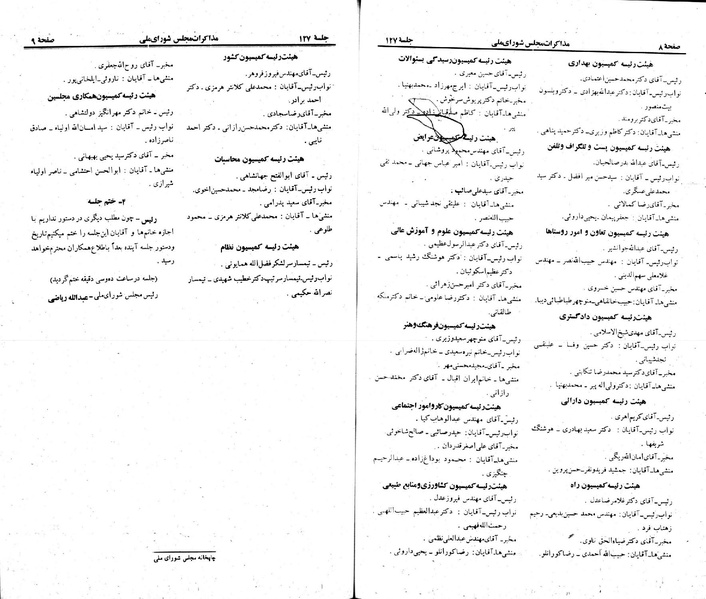 صفحهٔ ۸
مذاکرات مجلس شورای ملی
جلسهٔ ۱۲۷
هیئت رئیسه کمیسیون بهداری
رئیس ـ آقای دکتر محمدحسین اعتمادی.
نواب رئیس ـ آقایان : دکتر عبدالله بهزادی ـ دکتر ویلسون
بیت منصور
مخبر ـ آقای دکتر برومند.
منشی‌ها ـ آقایان : دکتر کاظم وزیری ـ دکتر حمید پناهی.
هیئت رئیسه کمیسیون پست و تلگراف و تلفن
رئیس ـ آقای عبدالله بدر صالحیان.
نواب رئیس ـ آقایان : سید حسن میر افضل ـ دکتر سید
محمدعلی عسگری.
مخبر ـ آقای رضا کمالاتی.
منشی‌ها ـ آقایان : جعفر پیمان ـ یحیی داروئی.
هیئت رئیسه کمیسیون تعاون و امور روستاها
رئیس ـ آقای عبدالله جوانشیر.
نواب رئیس ـ آقایان : مهندس حبیب‌الله نصر ـ مهندس
غلامعلی سهم‌الدینی.
مخبر ـ آقای مهندس حسین خسروی.
هیئت رئیسه کمیسیون دادگستری
رئیس ـ آقای مهدی شیخ‌الاسلامی.
نواب رئیس ـ آقایان : دکتر حسین وفا ـ علینقی
مخبر ـ آقای دکتر سید محمدرضا تنکابنی.
هیئت رئیسه کمیسیون دارائی
رئیس ـ آقای کریم اهری.
نواب رئیس ـ آقایان : دکتر سعید بهادری ـ هوشنگ
شریفها.
مخبر ـ آقای امان‌الله ریگی.
منشی‌ها ـ آقایان : جمشید فریدونفر ـ حسن پروین.
هیئت رئیسه کمیسیون راه
رئیس ـ آقای غلامرضا عدل.
نواب رئیس ـ آقایان : مهندس محمد حسین بدیعی ـ رحیم
زهتاب فرد.
مخبر ـ آقای دکتر ضیاءالحق ناوی.
منشی‌ها ـ آقایان : حبیب‌الله احمدی ـ رضا کورانلو.
هیئت رئیسه کمیسیون رسیدگی بسئوالات
رئیس ـ آقای حسین معیری.
نواب رئیس ـ آقایان : ایرج مهرزاد ـ محمد بهنیا.
مخبر ـ خانم دکتر پریوش سرخوش.
هیئت رئیسه کمیسیون عرایض
رئیس ـ آقای مهندس محمود پروشانی.
نواب رئیس ـ آقایان : امیر عباس جهانی ـ محمد تقی
حیدری.
مخبر ـ آقای سید علی صائب.
منشی‌ها ـ آقایان : علینقی نجدشیبانی ـ مهندس
حبیب‌الله نصر.
هیئت رئیسه کمیسیون علوم و آموزش عالی
رئیس ـ آقای دکتر عبدالرسول عظیمی.
نواب رئیس ـ آقایان : دکتر هوشنگ رشید یاسمی ـ
دکتر عظیم اسکوئیان.
مخبر ـ آقای دکتر امیرحسن زهرائی.
منشی‌ها ـ آقایان : دکتر رضا علومی ـ خانم دکتر ملکه
طالقانی.
هیئت رئیسه کمیسیون فرهنگ و هنر
رئیس ـ آقای منوچهر سعید وزیری.
نواب رئیس ـ خانم نیره سعیدی ـ خانم ژاله ضرابی.
مخبر ـ آقای مجید محسنی مهر.
منشی‌ها ـ خانم ایران اقبال ـ آقای دکتر محمدحسن
رازانی.
هیئت رئیسه کمیسیون کار و امور اجتماعی
رئیس ـ آقای مهندس عبدالوهاب کیا.
نواب رئیس ـ آقایان : حیدر صائبی ـ صالح شاخوئی
مخبر ـ آقای علی‌اصغر قدردان.
منشی‌ها ـ آقایان : محمود بوداغ‌زاده ـ عبدالرحیم
چنگیزی.
هیئت رئیسه کمیسیون کشاورزی و منابع طبیعی
رئیس ـ آقای مهندس فیروز عدل.
نواب رئیس ـ آقایان : دکتر عبدالعظیم حبیب‌اللهی
رحمت‌الله فهیمی.
مخبر ـ آقای مهندس عبدالعلی نظمی.
منشی‌ها ـ آقایان : رضا کورانلو ـ یحیی داروئی.
جلسهٔ ۱۲۷
مذاکرات مجلس شورای ملی
صفحهٔ ۹
هیئت رئیسه کمیسیون کشور
رئیس ـ آقای مهندس فیروز فروهر.
نواب رئیس ـ آقایان : محمدعلی کلانتر هرمزی ـ دکتر
احمد برادر.
مخبر ـ آقای رضا سجادی.
منشی‌ها ـ آقایان : دکتر محمدحسن رازانی ـ دکتر احمد
نایی.
هیئت رئیسه کمیسیون محاسبات
رئیس ـ آقای ابوالفتح جهانشاهی.
نواب رئیس ـ آقایان : رضا مجد ـ محمدحسین اخوی.
مخبر ـ آقای سعید پدرامی.
منشی‌ها ـ آقایان : محمدعلی کلانتر هرمزی ـ محمود
طلوعی.
هیئت رئیسه کمیسیون نظام
رئیس ـ تیمسار سرلشکر فضل‌الله همایونی.
نواب رئیس ـ تیمسار سرتیپ دکتر خطیب شهیدی ـ تیمسار
نصرالله حکیمی.
مخبر ـ آقای روح‌الله جعفری.
منشی‌ها ـ آقایان : ناروئی ـ ایلخانی‌پور.
هیئت رئیسه کمیسیون همکاری مجلسین
رئیس ـ خانم دکتر مهرانگیز دولتشاهی.
نواب رئیس ـ آقایان : سید امان‌الله اولیاء ـ صادق
ناصرزاده.
مخبر ـ آقای دکتر سید یحیی بهبهانی.
منشی‌ها ـ آقایان : ابوالحسن احتشامی ـ ناصر اولیاء
شیرازی.
۴ـ ختم جلسه
رئیس ـ چون مطلب دیگری در دستور نداریم با
اجازه خانم‌ها و آقایان این جلسه را ختم میکنیم تاریخ
و دستور جلسه آینده بعداً باطلاع همکاران محترم خواهد
رسید.
(جلسه در ساعت ده و سی دقیقه ختم گردید)
رئیس مجلس شورای ملی ـ عبدالله ریاضی
چاپخانه مجلس شورای ملی